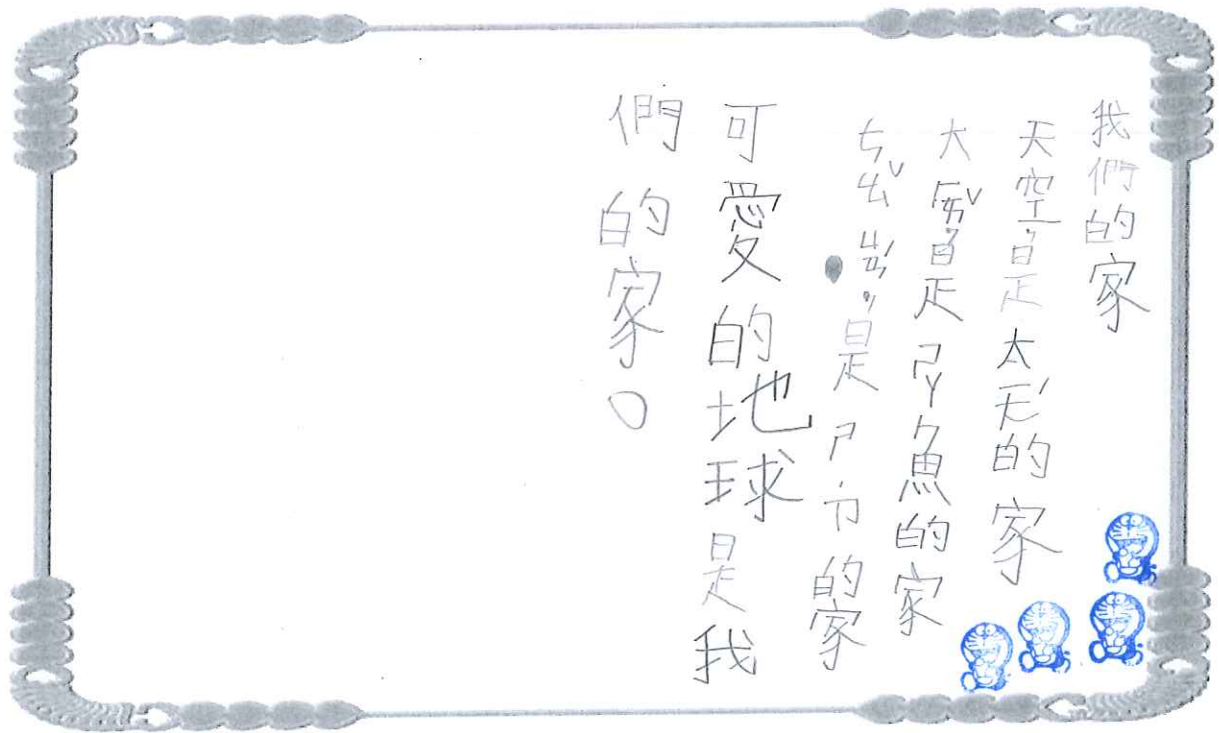 我們的家
天空是太ㄤˊ的家
大ㄏㄞˇ是ㄕㄚ魚的家
ㄘㄠˇ ㄔㄤˊ 是ㄕ ㄗ的家
可愛的地球是我
們的家。